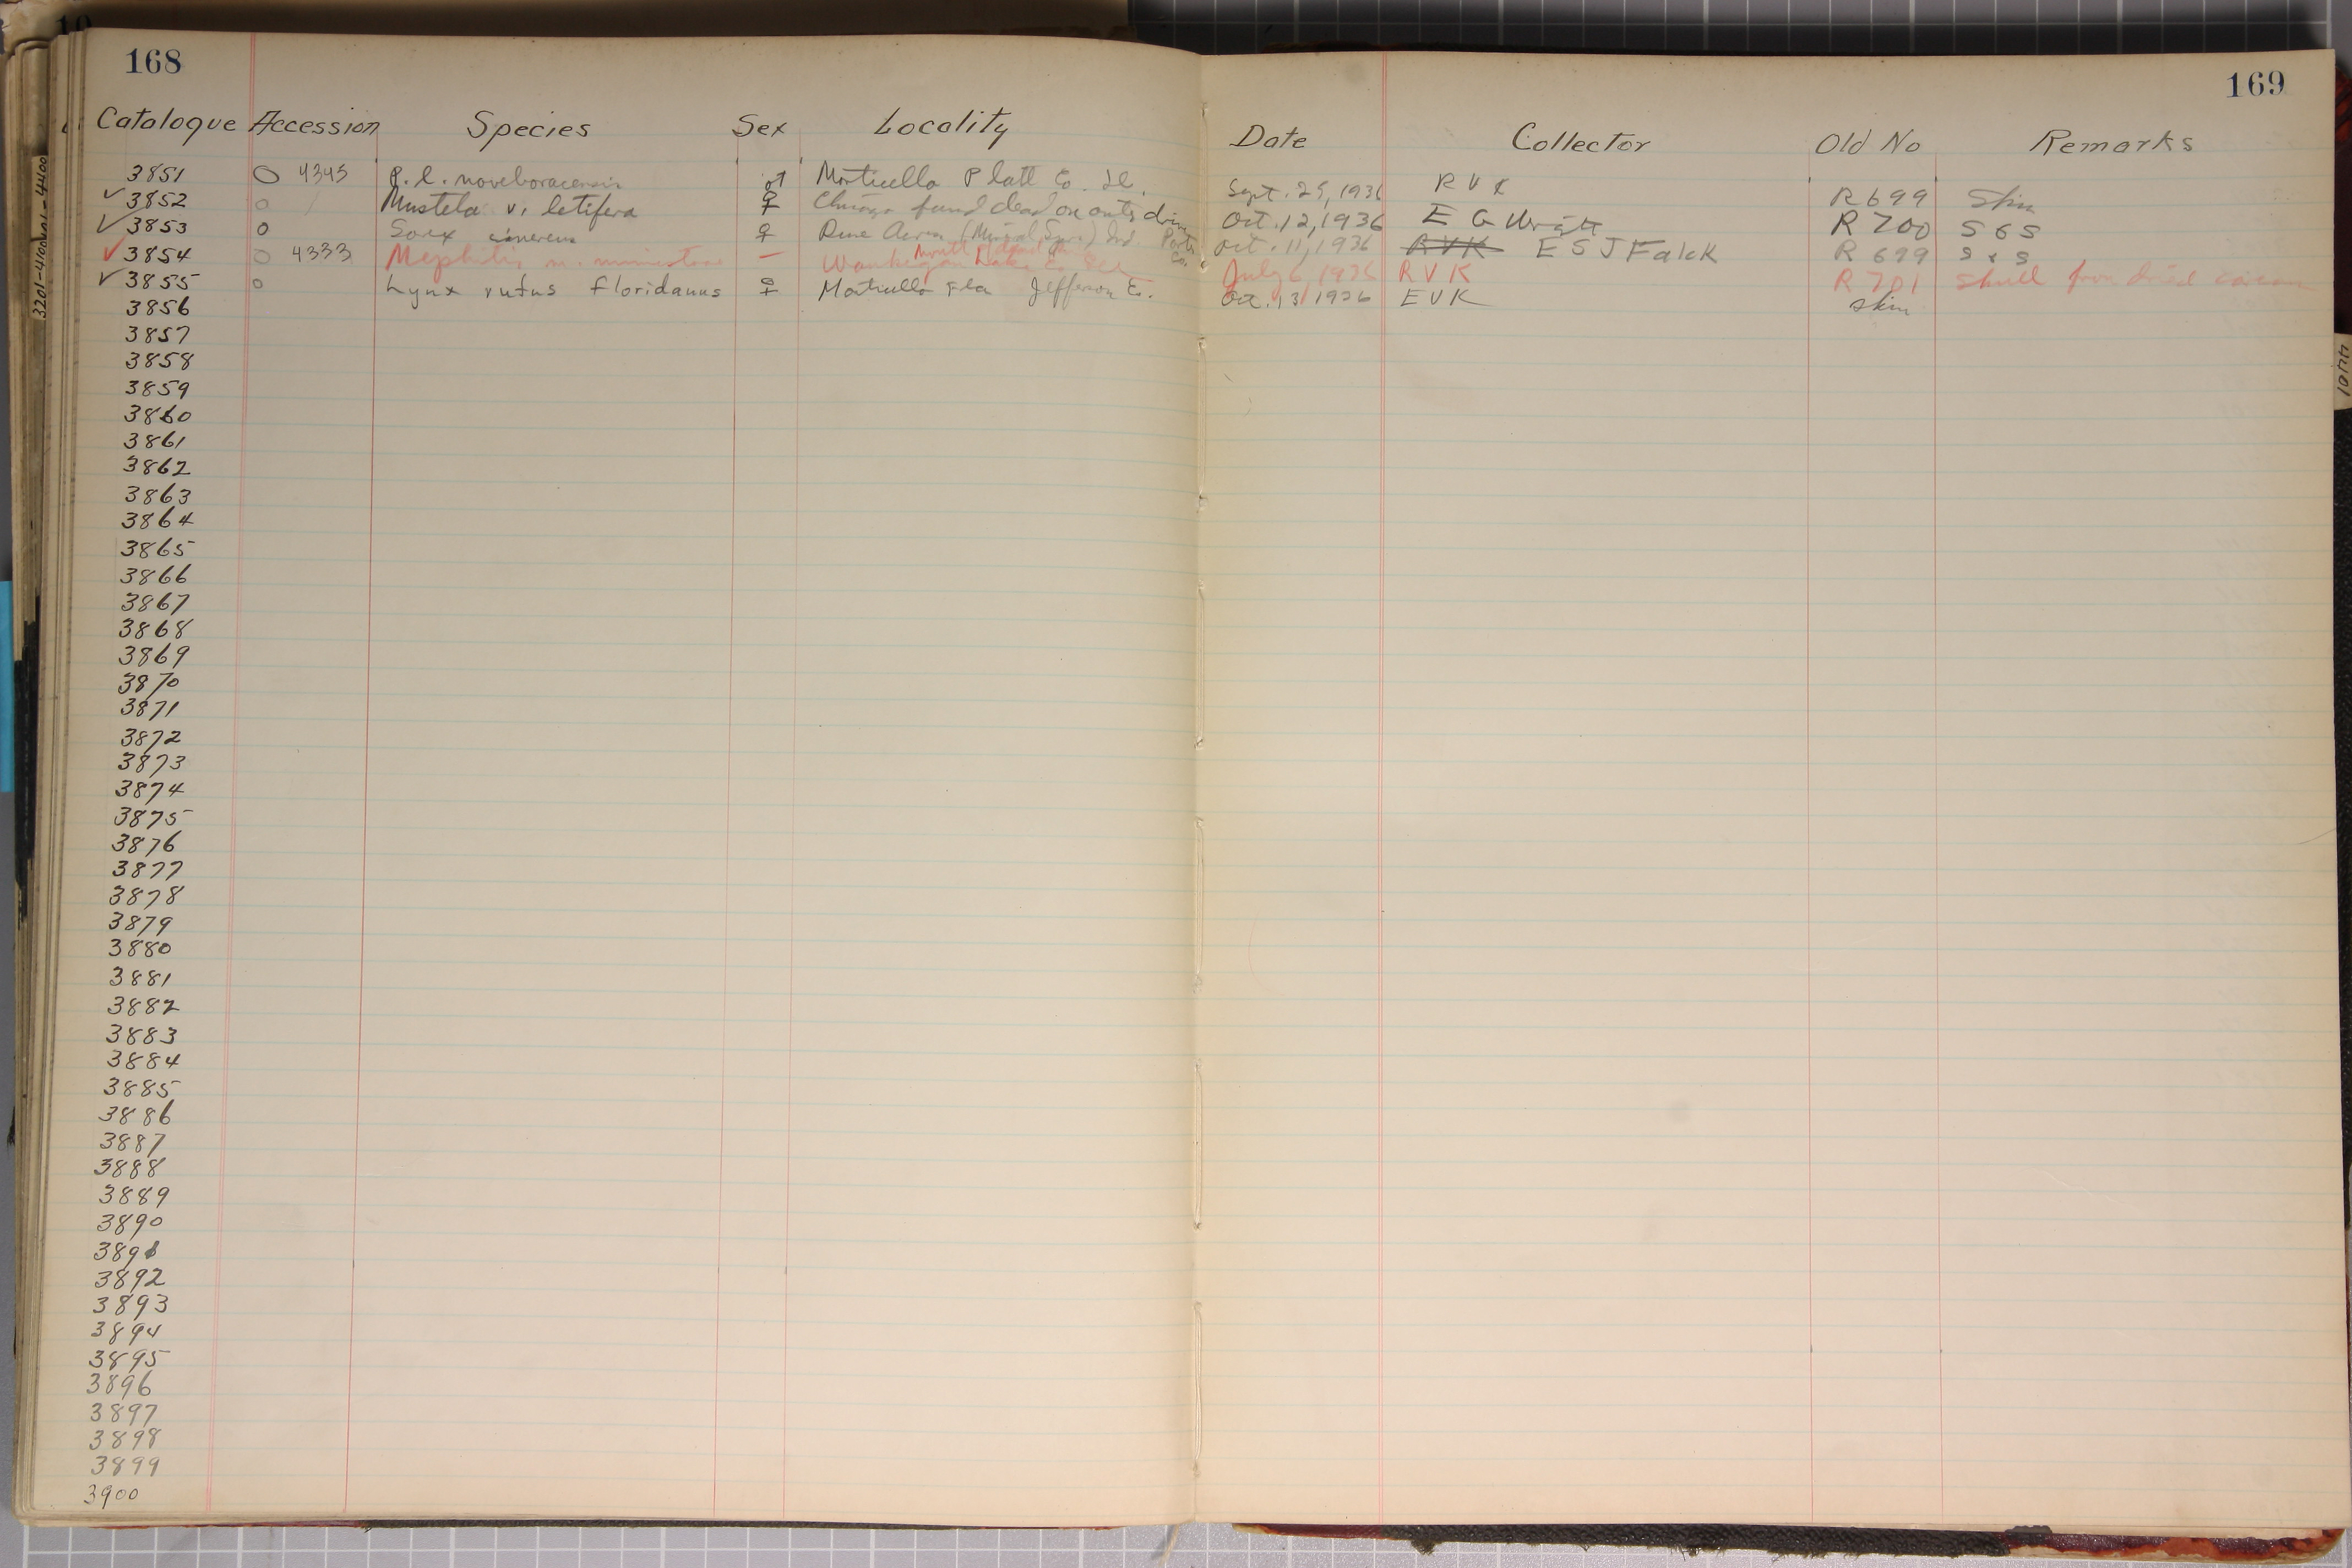 168
169
Catalogue Accession Species Sex Locality Date Collector Old No Remarks
3851 4345 P. l. noveboracensis ♂ Monticello Platt Co. Ill. Sept. 25, 1936 R V K R 699 Skin
✓ 3852 Mustela v. letifera ♀ Chicago found dead on outs drive Oct. 12, 1936 E G Wright R 700 S & S
✓ 3853 Sorex cinereus ♀ Dune Acres (Mineral Spr.) Ind. Porter Co. Oct. 11, 1936 RVK E S J Falck R 699 S & S
✓ 3854 4333 Mephitis m. — Waukegan Lake Co. Ill July 6, 1936 R V K R 701 Skull from dried
✓ 3855 Lynx rufus floridanus ♀ Monticello Fla Jefferson Co. Oct. 13, 1936 E V K skin
3856
3857
3858
3859
3860
3861
3862
3863
3864
3865
3866
3867
3868
3869
3870
3871
3872
3873
3874
3875
3876
3877
3878
3879
3880
3881
3882
3883
3884
3885
3886
3887
3888
3889
3890
3891
3892
3893
3894
3895
3896
3897
3898
3899
3900